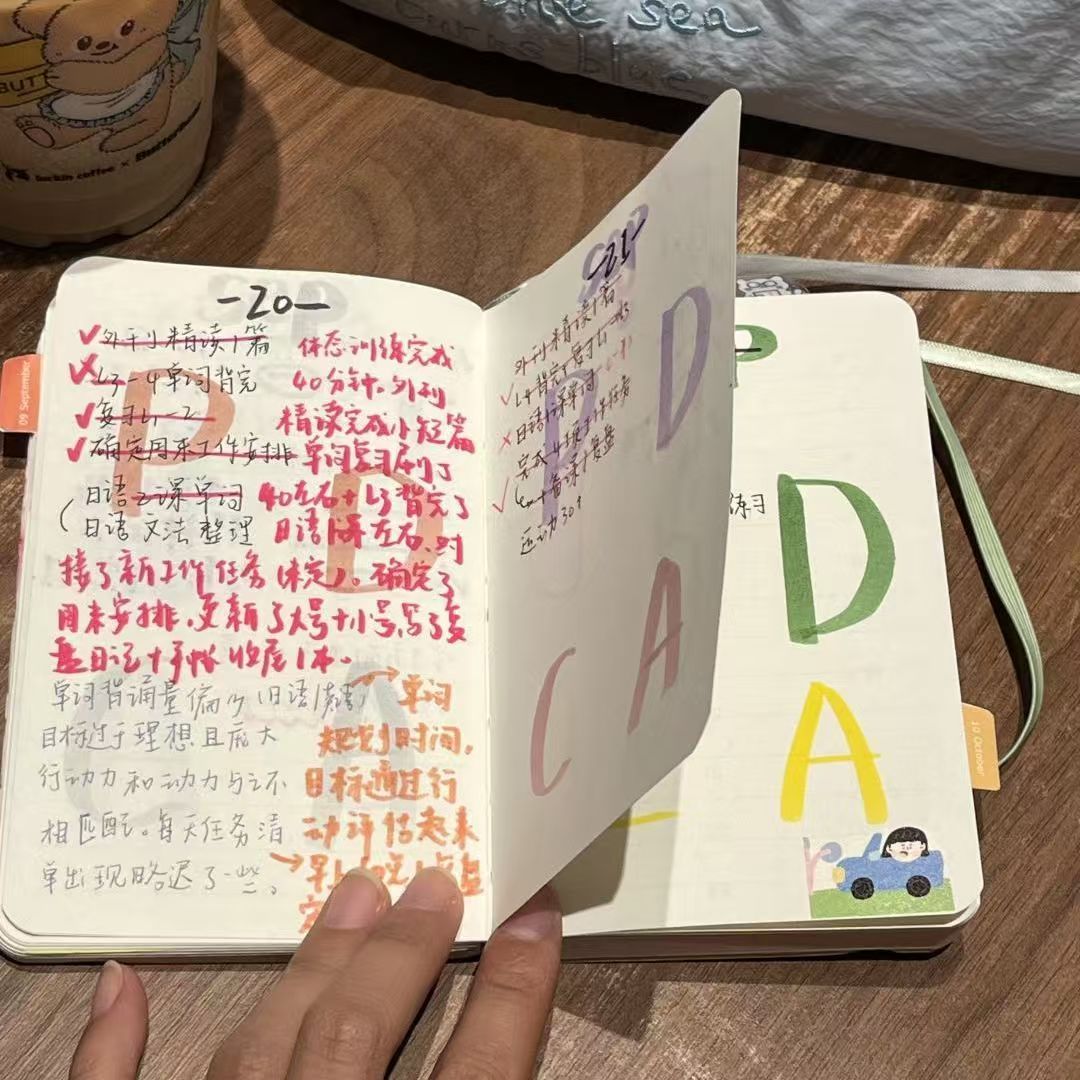 the sea
turns blue
BUTT
luckin coffee × Butter
09 September
-20-
外刊精读1篇
L3-4单词背完
复习L1-2
确定周末工作安排
日语2课单词
日语文法整理
体态训练完成
40分钟,外刊
精读完成小短篇
单词复习
40左右+L3背完了
日语1课左右,对
接了新工作任务(未定)。确定了
周末安排,更新了大号+小号,写了复
盘日记+手帐收尾1本。
单词背诵量偏少(日语/英语)
目标过于理想且庞大
行动力和动力与之不
相匹配。每天任务清
单出现略迟了一些。
→单词
规划时间,
目标通过行
动评估起来
→早上
P
D
C
A
Sep
-21-
外刊精读1篇
日语1课单词
运动30
P
D
C
A
P
D
A
练习
10 October